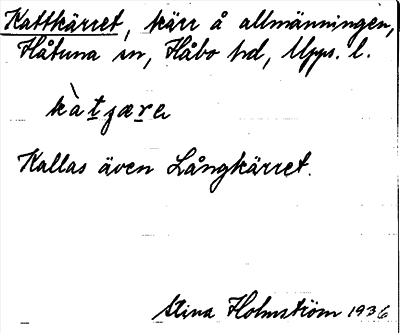 Kattkärret, kärr å allmänningen,
Håtuna sn, Håbo hd, Upps. l.
kàtɟære
Kallas även Långkärret.
Stina Holmström 1936